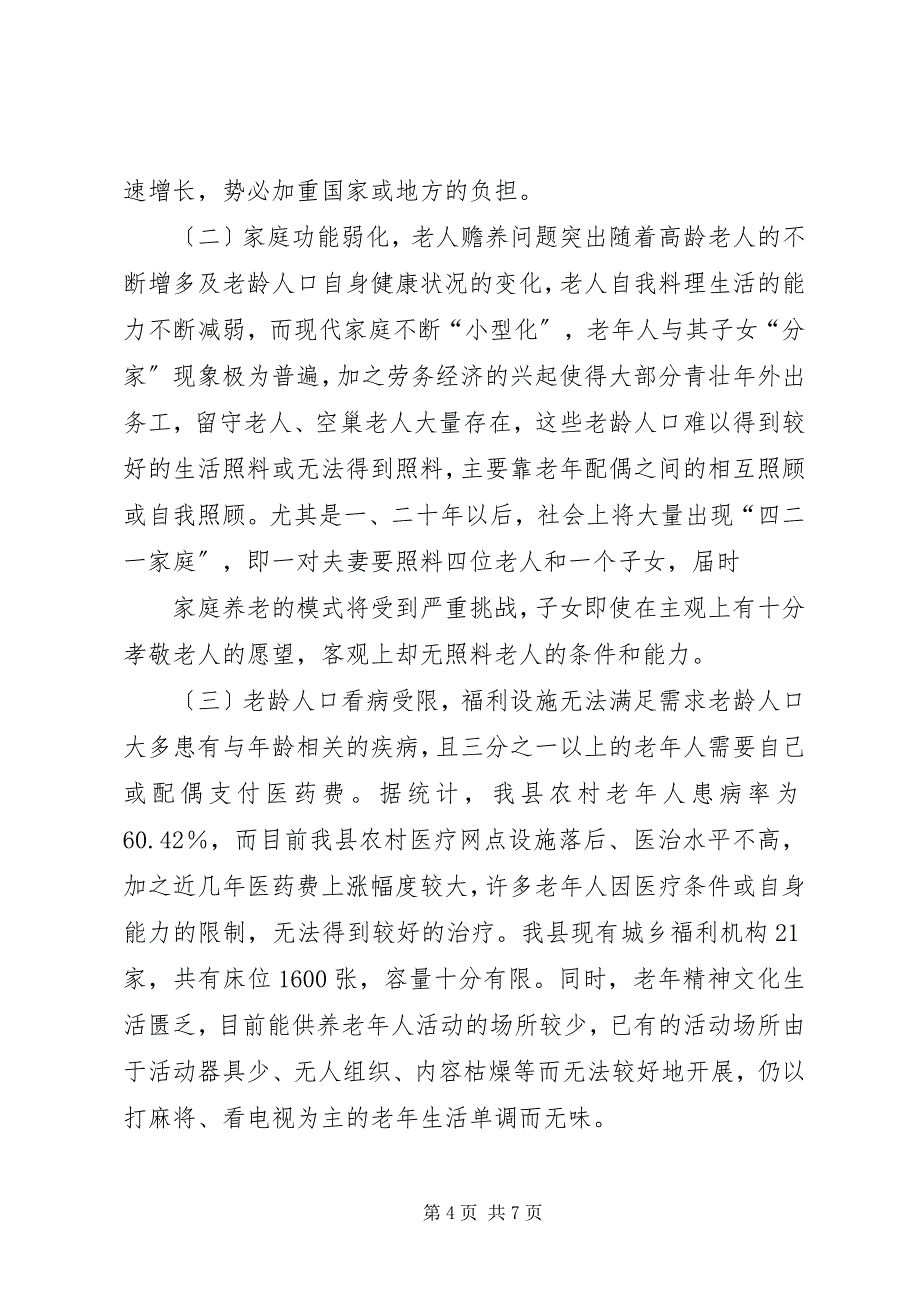 速增长，势必加重国家或地方的负担。
〔二〕家庭功能弱化，老人赡养问题突出随着高龄老人的不
断增多及老龄人口自身健康状况的变化，老人自我料理生活的能
力不断减弱，而现代家庭不断“小型化〞，老年人与其子女“分
家〞现象极为普遍，加之劳务经济的兴起使得大部分青壮年外出
务工，留守老人、空巢老人大量存在，这些老龄人口难以得到较
好的生活照料或无法得到照料，主要靠老年配偶之间的相互照顾
或自我照顾。尤其是一、二十年以后，社会上将大量出现“四二
一家庭〞，即一对夫妻要照料四位老人和一个子女，届时
家庭养老的模式将受到严重挑战，子女即使在主观上有十分
孝敬老人的愿望，客观上却无照料老人的条件和能力。
〔三〕老龄人口看病受限，福利设施无法满足需求老龄人口
大多患有与年龄相关的疾病，且三分之一以上的老年人需要自己
或配偶支付医药费。据统计，我县农村老年人患病率为
60.42％，而目前我县农村医疗网点设施落后、医治水平不高，
加之近几年医药费上涨幅度较大，许多老年人因医疗条件或自身
能力的限制，无法得到较好的治疗。我县现有城乡福利机构 21
家，共有床位 1600 张，容量十分有限。同时，老年精神文化生
活匮乏，目前能供养老年人活动的场所较少，已有的活动场所由
于活动器具少、无人组织、内容枯燥等而无法较好地开展，仍以
打麻将、看电视为主的老年生活单调而无味。
第 4 页 共 7 页